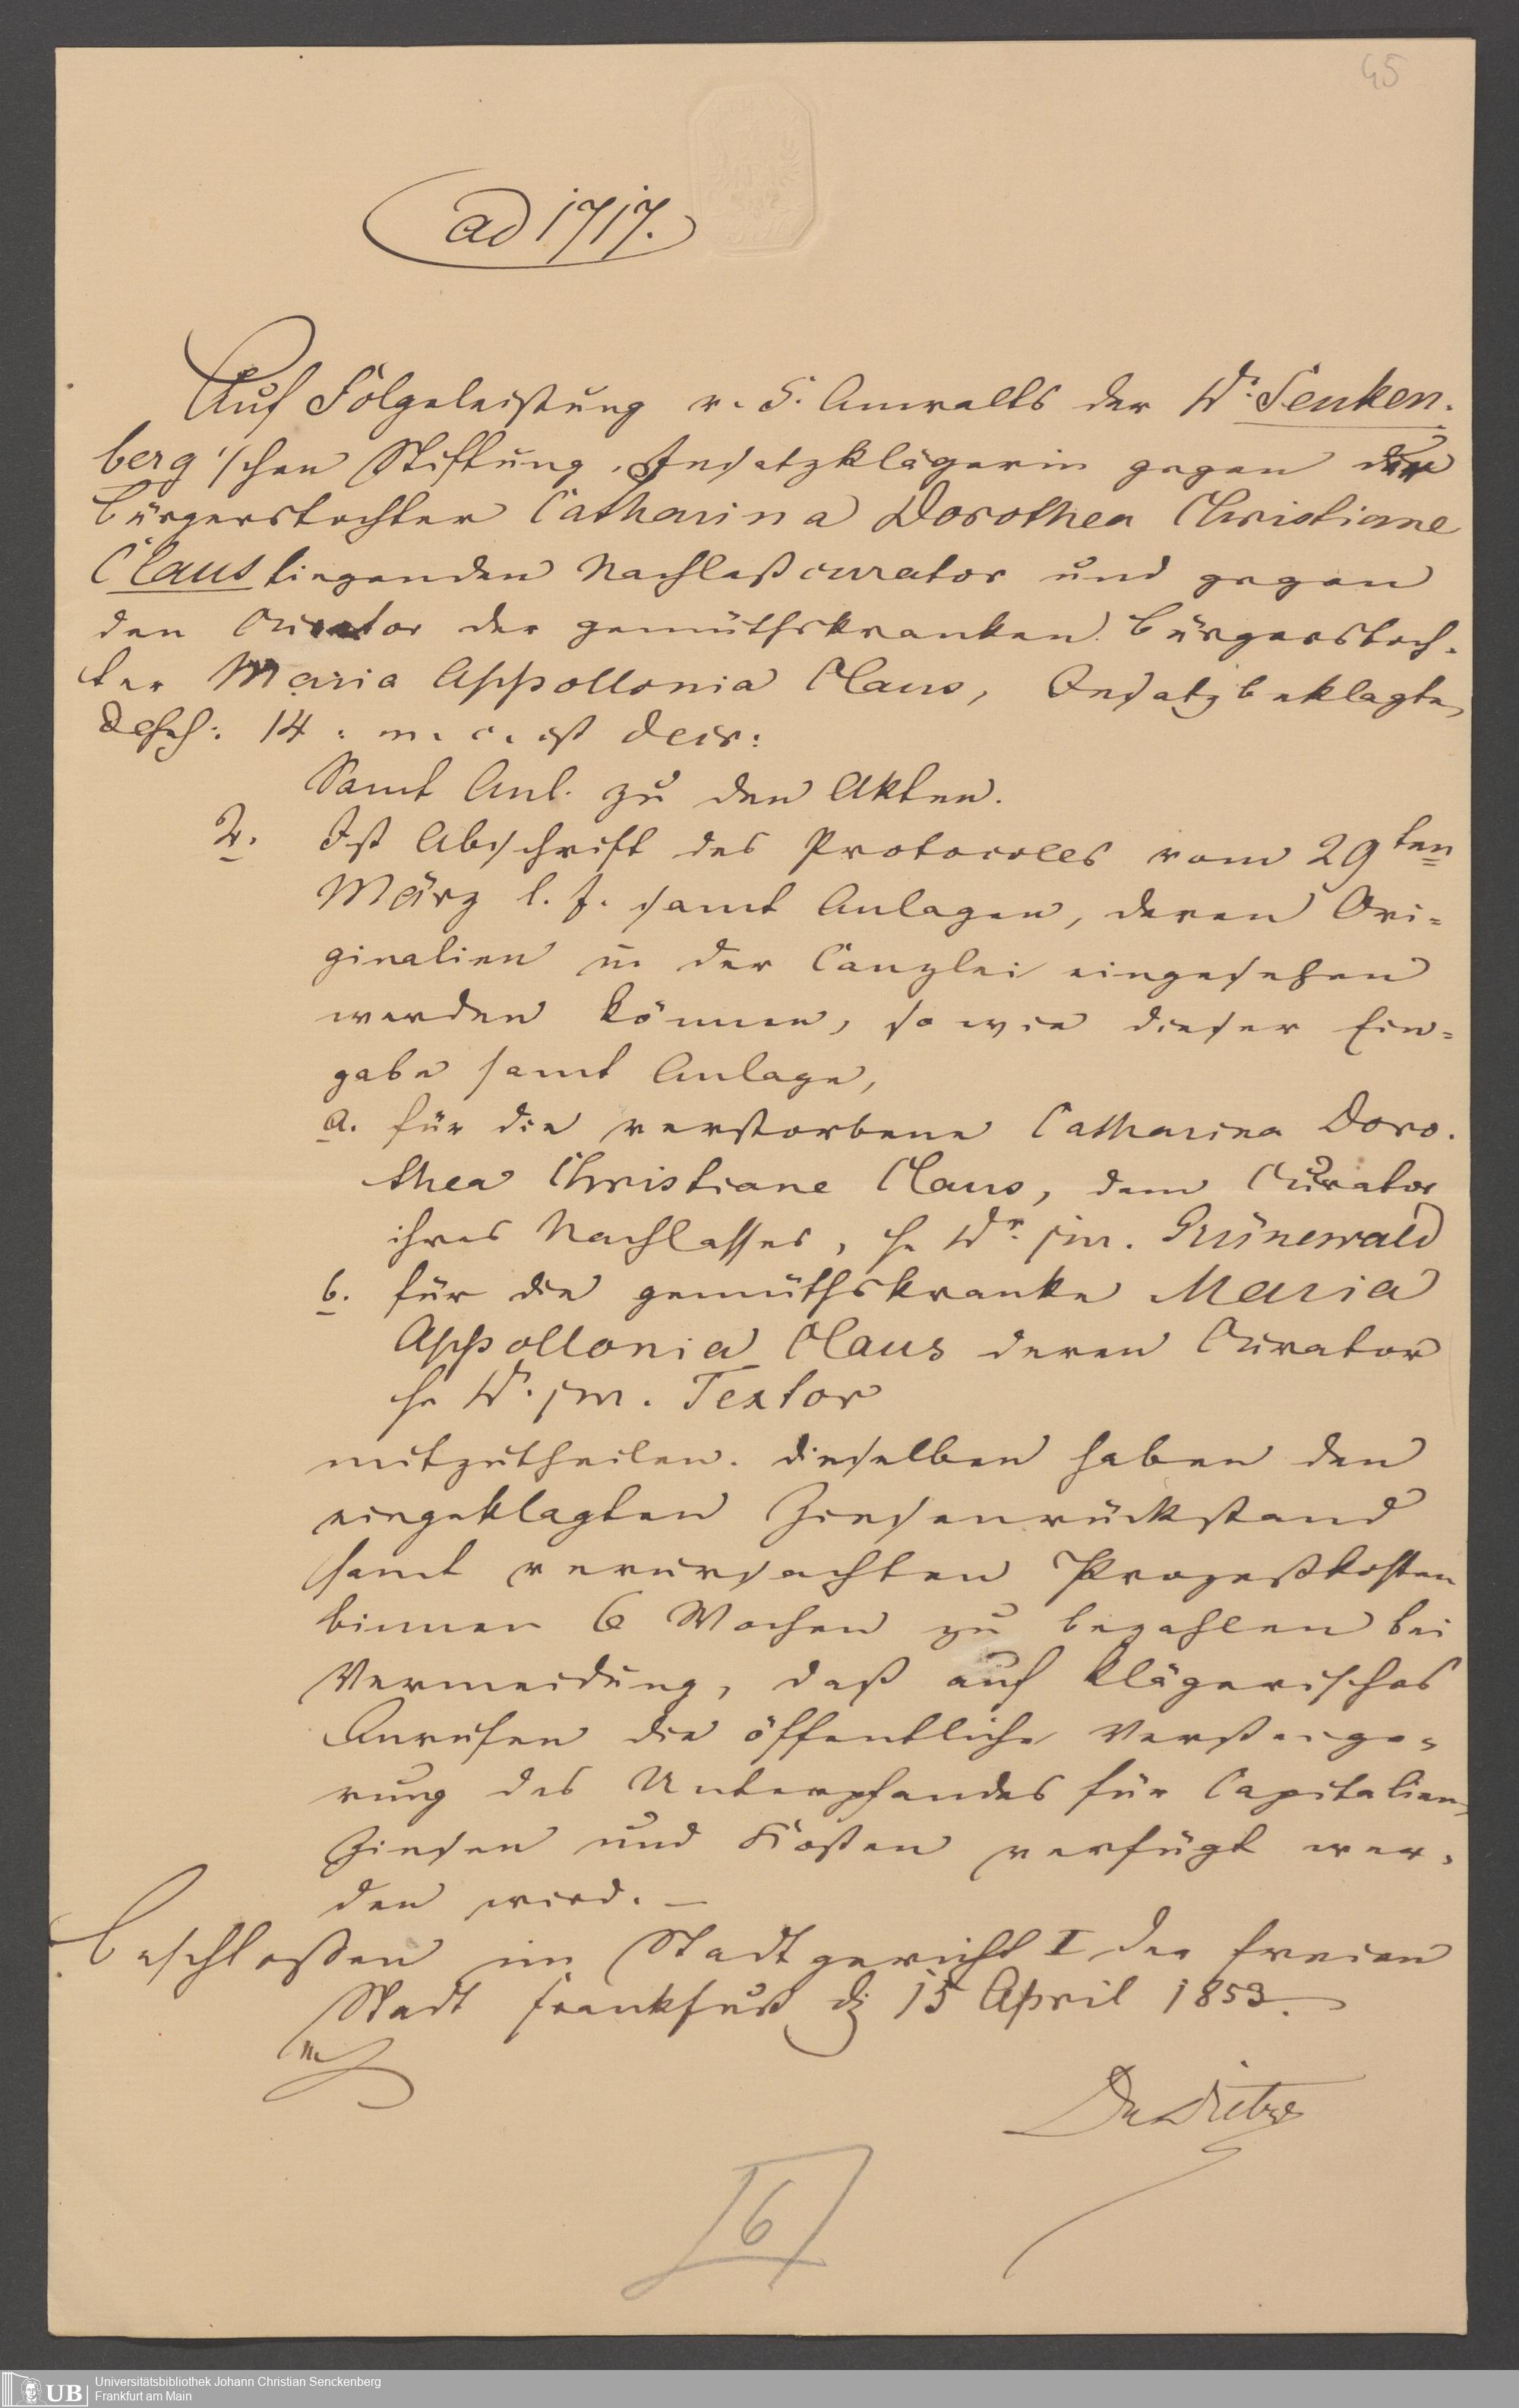 45
ad 1717.
Auf Folgeleistung v. S. Anwalts der Dr. Senken-
berg'schen Stiftung, Insatzklägerin gegen den
Bürgerstochter Catharina Dorothea Christiane
Claus liegenden Nachlaßcurator und gegen
den Curator der gemüthskranken Bürgerstoch-
ter Maria Appollonia Claus, Insatzbeklagte,
14. m. c. ist decr:
Samt Anl. zu den Akten.
2. Ist Abschrift des Protocolls vom 29ten
März l. J. samt Anlagen, deren Ori-
ginalien in der Canzlei eingesehen
werden können, so wie dieser Ein-
gabe samt Anlage,
a. für die verstorbene Catharina Doro-
thea Christiane Claus, dem Curator
ihres Nachlasses, H. Dr. jur. Grünewald
b. für die gemüthskranke Maria
Appollonia Claus deren Curator
H. Dr. jur. Textor
mitzutheilen. dieselben haben den
eingeklagten Zinsenrückstand
samt verursachten Prozeßkosten
binnen 6 Wochen zu bezahlen bei
Vermeidung, daß auf klägerisches
Anrufen die öffentliche Versteige-
rung des Unterpfandes für Capitalien,
Zinsen und Kosten verfügt wer-
den wird. —
Beschlossen im Stadtgericht I der freien
Stadt Frankfurt d. 15 April 1853.
6
UB
Universitätsbibliothek Johann Christian Senckenberg
Frankfurt am Main